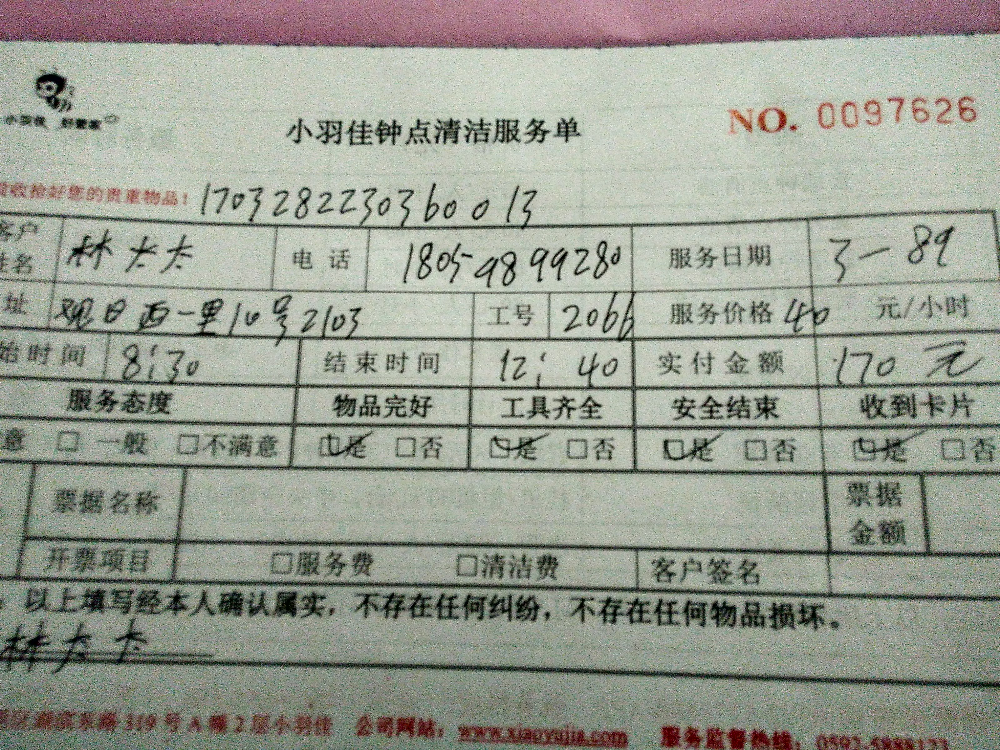 小羽佳 好管家
小羽佳钟点清洁服务单
NO. 0097626
收拾好您的贵重物品!
17032822303600 13
客户姓名 林太太 电话 18059899280 服务日期 3-89
址 观日西一里10号2103 工号 2066 服务价格 40 元/小时
始时间 8:30 结束时间 12:40 实付金额 170元
服务态度 物品完好 工具齐全 安全结束 收到卡片
意 □ 一般 □不满意 □是 □否 □是 □否 □是 □否 □是 □否
票据名称 票据金额
开票项目 □服务费 □清洁费 客户签名
以上填写经本人确认属实，不存在任何纠纷，不存在任何物品损坏。
林太太
东路319号A幢2层小羽佳 公司网站：www.xiaoyujia.com 服务监督热线：